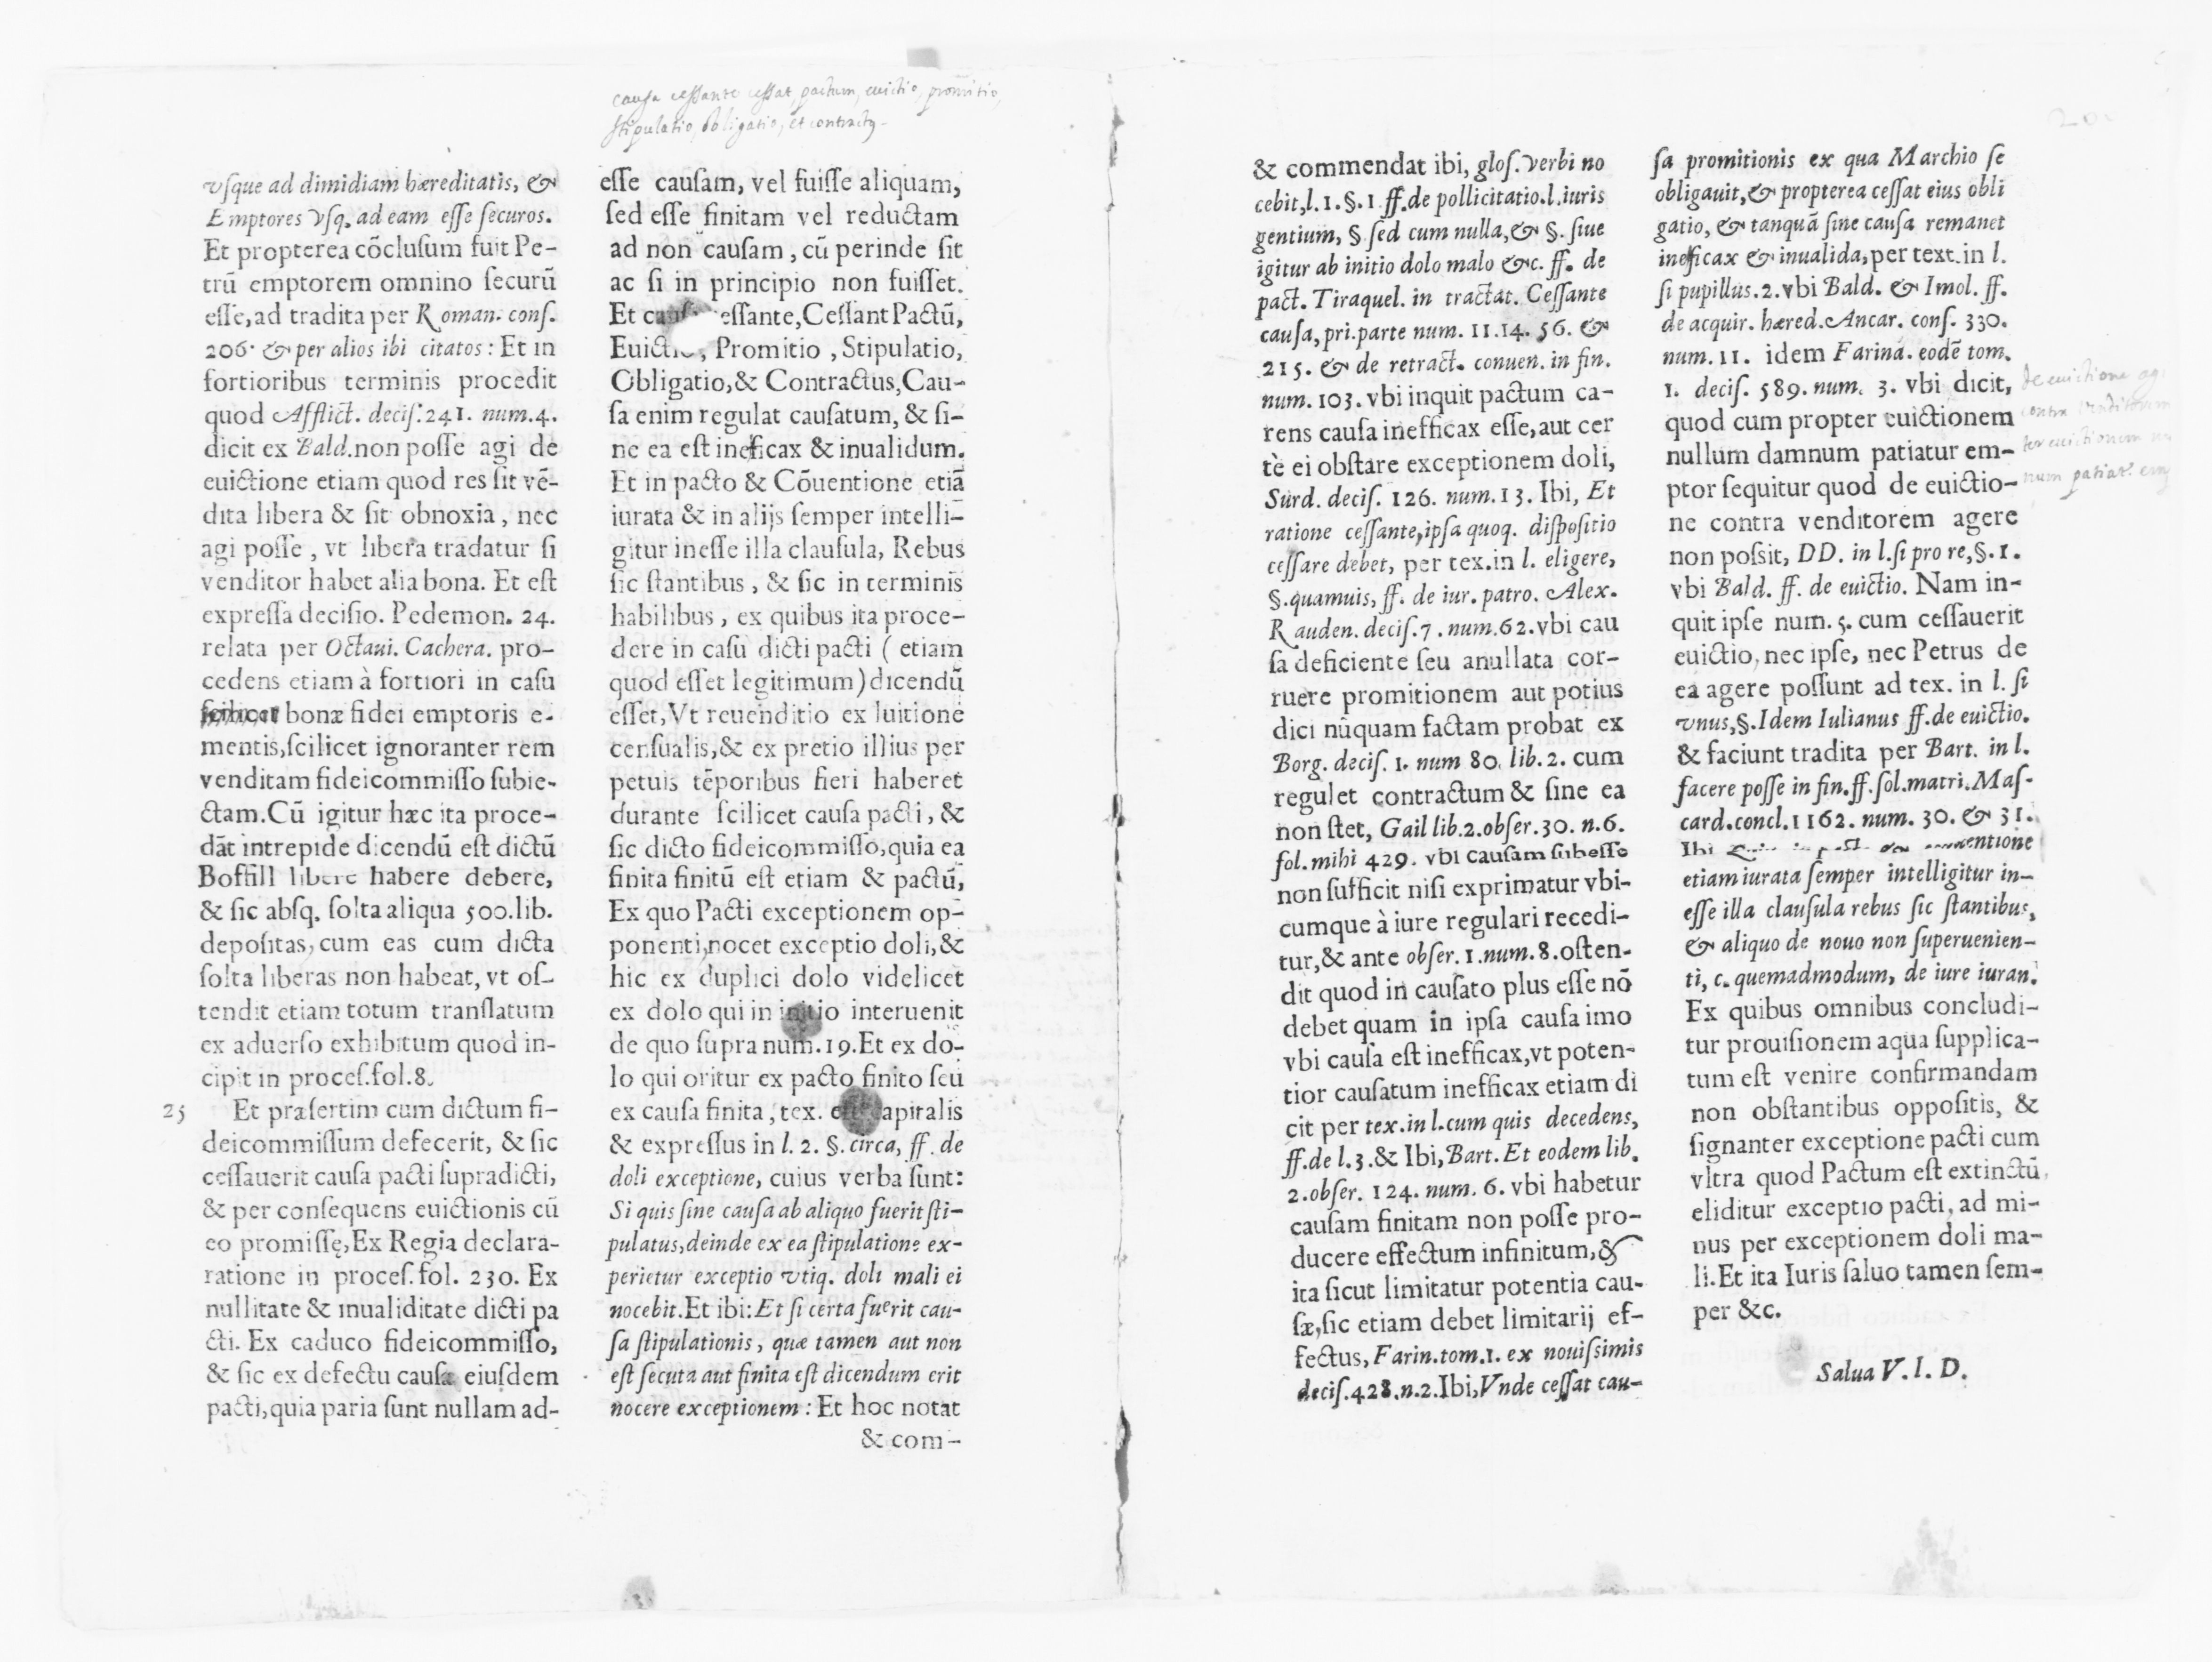 causa cessante cessat pactum, euictio, promitio,
stipulatio, obligatio, et contractus
vsque ad dimidiam hæreditatis, &
Emptores vsq. ad eam esse securos.
Et propterea cōclusum fuit Pe-
trū emptorem omnino securū
esse, ad tradita per Roman. cons.
206. & per alios ibi citatos: Et in
fortioribus terminis procedit
quod Afflict. decis. 241. num. 4.
dicit ex Bald. non posse agi de
euictione etiam quod res sit vē-
dita libera & sit obnoxia, nec
agi posse, vt libera tradatur si
venditor habet alia bona. Et est
expressa decisio. Pedemon. 24.
relata per Octaui. Cachera. pro-
cedens etiam à fortiori in casu
bonæ fidei emptoris e-
mentis, scilicet ignoranter rem
venditam fideicommisso subie-
ctam. Cū igitur hæc ita proce-
dāt intrepide dicendū est dictū
Boffill libere habere debere,
& sic absq. solta aliqua 500. lib.
depositas, cum eas cum dicta
solta liberas non habeat, vt os-
tendit etiam totum translatum
ex aduerso exhibitum quod in-
cipit in proces. fol. 8.
25 Et præsertim cum dictum fi-
deicommissum defecerit, & sic
cessauerit causa pacti supradicti,
& per consequens euictionis cū
eo promissę, Ex Regia declara-
ratione in proces. fol. 230. Ex
nullitate & inualiditate dicti pa
cti. Ex caduco fideicommisso,
& sic ex defectu causæ eiusdem
pacti, quia paria sunt nullam ad-
esse causam, vel fuisse aliquam,
sed esse finitam vel reductam
ad non causam, cū perinde sit
ac si in principio non fuisset.
Et essante, Cessant Pactū,
Promitio, Stipulatio,
Obligatio, & Contractus, Cau-
sa enim regulat causatum, & si-
ne ea est inefficax & inualidum.
Et in pacto & Cōuentione etiā
iurata & in alijs semper intelli-
gitur inesse illa clausula, Rebus
sic stantibus, & sic in terminis
habilibus, ex quibus ita proce-
dere in casu dicti pacti (etiam
quod esset legitimum) dicendū
esset, Vt reuenditio ex luitione
censualis, & ex pretio illius per
petuis tēporibus fieri haberet
durante scilicet causa pacti, &
sic dicto fideicommisso, quia ea
finita finitū est etiam & pactū,
Ex quo Pacti exceptionem op-
ponenti, nocet exceptio doli, &
hic ex duplici dolo videlicet
ex dolo qui in initio interuenit
de quo supra num. 19. Et ex do-
lo qui oritur ex pacto finito seu
ex causa finita, tex. est capitalis
& expressus in l. 2. §. circa, ff. de
doli exceptione, cuius verba sunt:
Si quis sine causa ab aliquo fuerit sti-
pulatus, deinde ex ea stipulatione ex-
perietur exceptio vtiq. doli mali ei
nocebit. Et ibi: Et si certa fuerit cau-
sa stipulationis, quæ tamen aut non
est secuta aut finita est dicendum erit
nocere exceptionem: Et hoc notat
& com-
& commendat ibi, glos. verbi no
cebit, l. 1. §. 1 ff. de pollicitatio. l. iuris
gentium, § sed cum nulla, & §. siue
igitur ab initio dolo malo &c. ff. de
pact. Tiraquel. in tractat. Cessante
causa, pri. parte num. 11. 14. 56. &
215. & de retract. conuen. in fin.
num. 103. vbi inquit pactum ca-
rens causa inefficax esse, aut cer
tè ei obstare exceptionem doli,
Surd. decis. 126. num. 13. Ibi, Et
ratione cessante, ipsa quoq. dispositio
cessare debet, per tex. in l. eligere,
§. quamuis, ff. de iur. patro. Alex.
Rauden. decis. 7. num. 62. vbi cau
sa deficiente seu anullata cor-
ruere promitionem aut potius
dici nūquam factam probat ex
Borg. decis. 1. num 80. lib. 2. cum
regulet contractum & sine ea
non stet, Gail lib. 2. obser. 30. n. 6.
fol. mihi 429. vbi causam subesse
non sufficit nisi exprimatur vbi-
cumque à iure regulari recedi-
tur, & ante obser. 1. num. 8. osten-
dit quod in causato plus esse nō
debet quam in ipsa causa imo
vbi causa est inefficax, vt poten-
tior causatum inefficax etiam di
cit per tex. in l. cum quis decedens,
ff. de l. 3. & Ibi, Bart. Et eodem lib.
2. obser. 124. num. 6. vbi habetur
causam finitam non posse pro-
ducere effectum infinitum, &
ita sicut limitatur potentia cau-
sæ, sic etiam debet limitarij ef-
fectus, Farin. tom. 1. ex nouissimis
decis. 428. n. 2. Ibi, Vnde cessat cau-
sa promitionis ex qua Marchio se
obligauit, & propterea cessat eius obli
gatio, & tanquā sine causa remanet
inefficax & inualida, per text. in l.
si pupillus. 2. vbi Bald. & Imol. ff.
de acquir. hæred. Ancar. cons. 330.
num. 11. idem Farina. eodē tom.
1. decis. 589. num. 3. vbi dicit,
quod cum propter euictionem
nullum damnum patiatur em-
ptor sequitur quod de euictio-
ne contra venditorem agere
non possit, DD. in l. si pro re, §. 1.
vbi Bald. ff. de euictio. Nam in-
quit ipse num. 5. cum cessauerit
euictio, nec ipse, nec Petrus de
ea agere possunt ad tex. in l. si
vnus, §. Idem Iulianus ff. de euictio.
& faciunt tradita per Bart. in l.
facere posse in fin. ff. sol. matri. Mas-
card. concl. 1162. num. 30. & 31.
Ibi
etiam iurata semper intelligitur in-
esse illa clausula rebus sic stantibus,
& aliquo de nouo non superuenien-
ti, c. quemadmodum, de iure iuran.
Ex quibus omnibus concludi-
tur prouisionem aqua supplica-
tum est venire confirmandam
non obstantibus oppositis, &
signanter exceptione pacti cum
vltra quod Pactum est extinctū,
eliditur exceptio pacti, ad mi-
nus per exceptionem doli ma-
li. Et ita Iuris saluo tamen sem-
per &c.
Salua V. I. D.
de euictione
contra
euictionem
patiat.